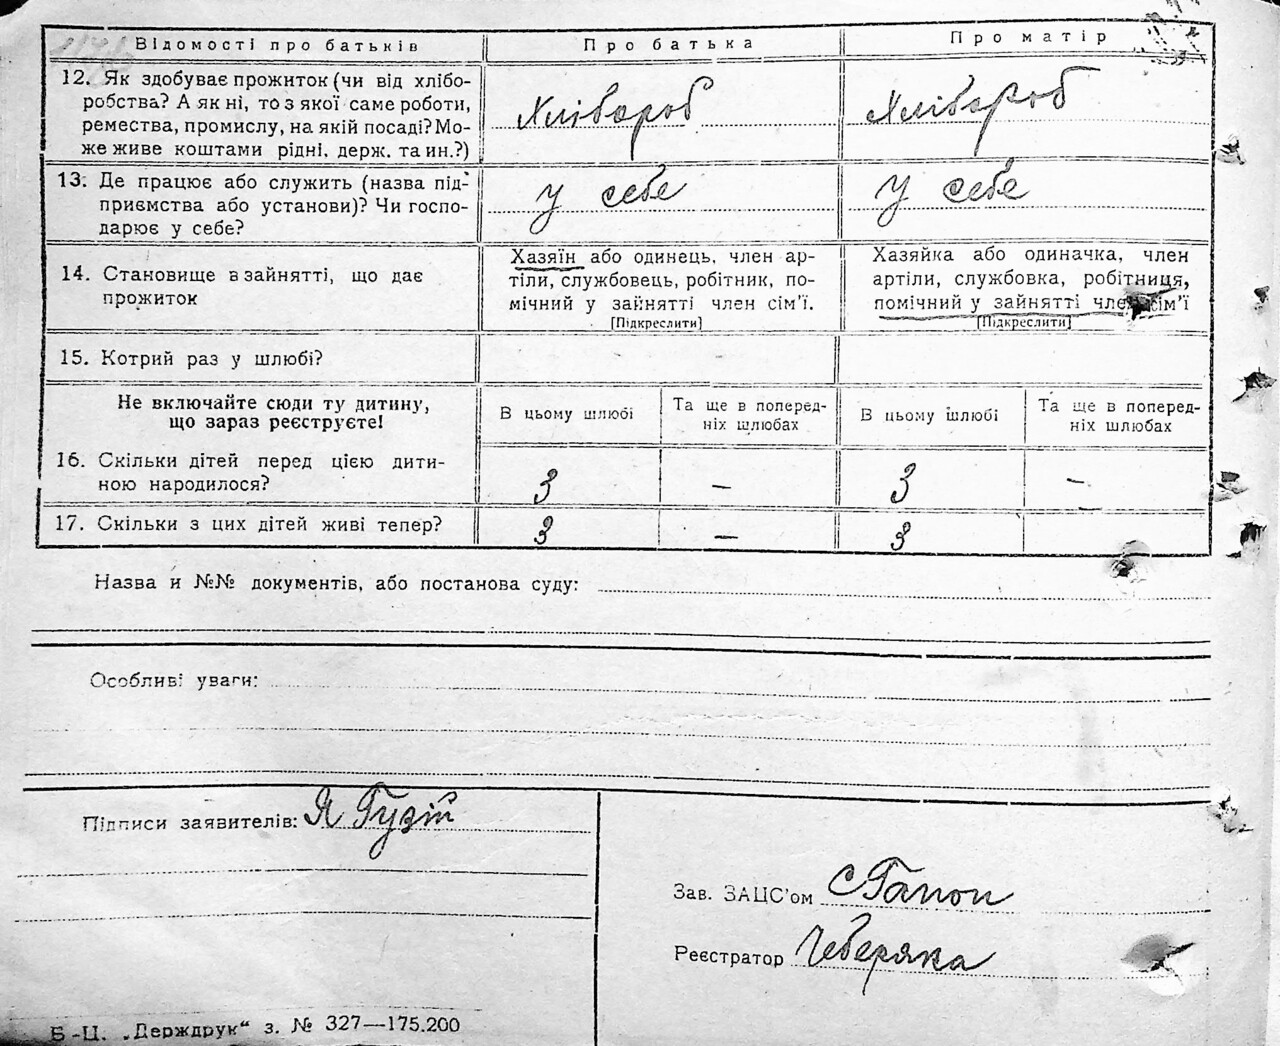 Відомості про батьків Про батька Про матір
12. Як здобуває прожиток (чи від хлібо-
робства? А як ні, то з якої саме роботи,
ремества, промислу, на якій посаді? Мо-
же живе коштами рідні, держ. та ин.?)
Хлібороб Хлібороб
13. Де працює або служить (назва під-
приємства або установи)? Чи госпо-
дарює у себе?
У себе У себе
14. Становище в зайнятті, що дає
прожиток
Хазяїн або одинець, член ар-
тіли, службовець, робітник, по-
мічний у зайнятті член сім'ї.
[Підкреслити]
Хазяйка або одиначка, член
артіли, службовка, робітниця,
помічний у зайнятті член сім'ї
[Підкреслити]
15. Котрий раз у шлюбі?
Не включайте сюди ту дитину,
що зараз реєструєте!
В цьому шлюбі
Та ще в поперед-
ніх шлюбах
В цьому шлюбі
Та ще в поперед-
ніх шлюбах
16. Скільки дітей перед цією дити-
ною народилося?
3 – 3 –
17. Скільки з цих дітей живі тепер? 3 – 3
Назва и №№ документів, або постанова суду:
Особливі уваги:
Підписи заявителів: Я Гузій
Зав. ЗАЦС'ом С Гапон
Реєстратор Чеберяка
Б-Ц. „Держдрук“ з. № 327—175.200